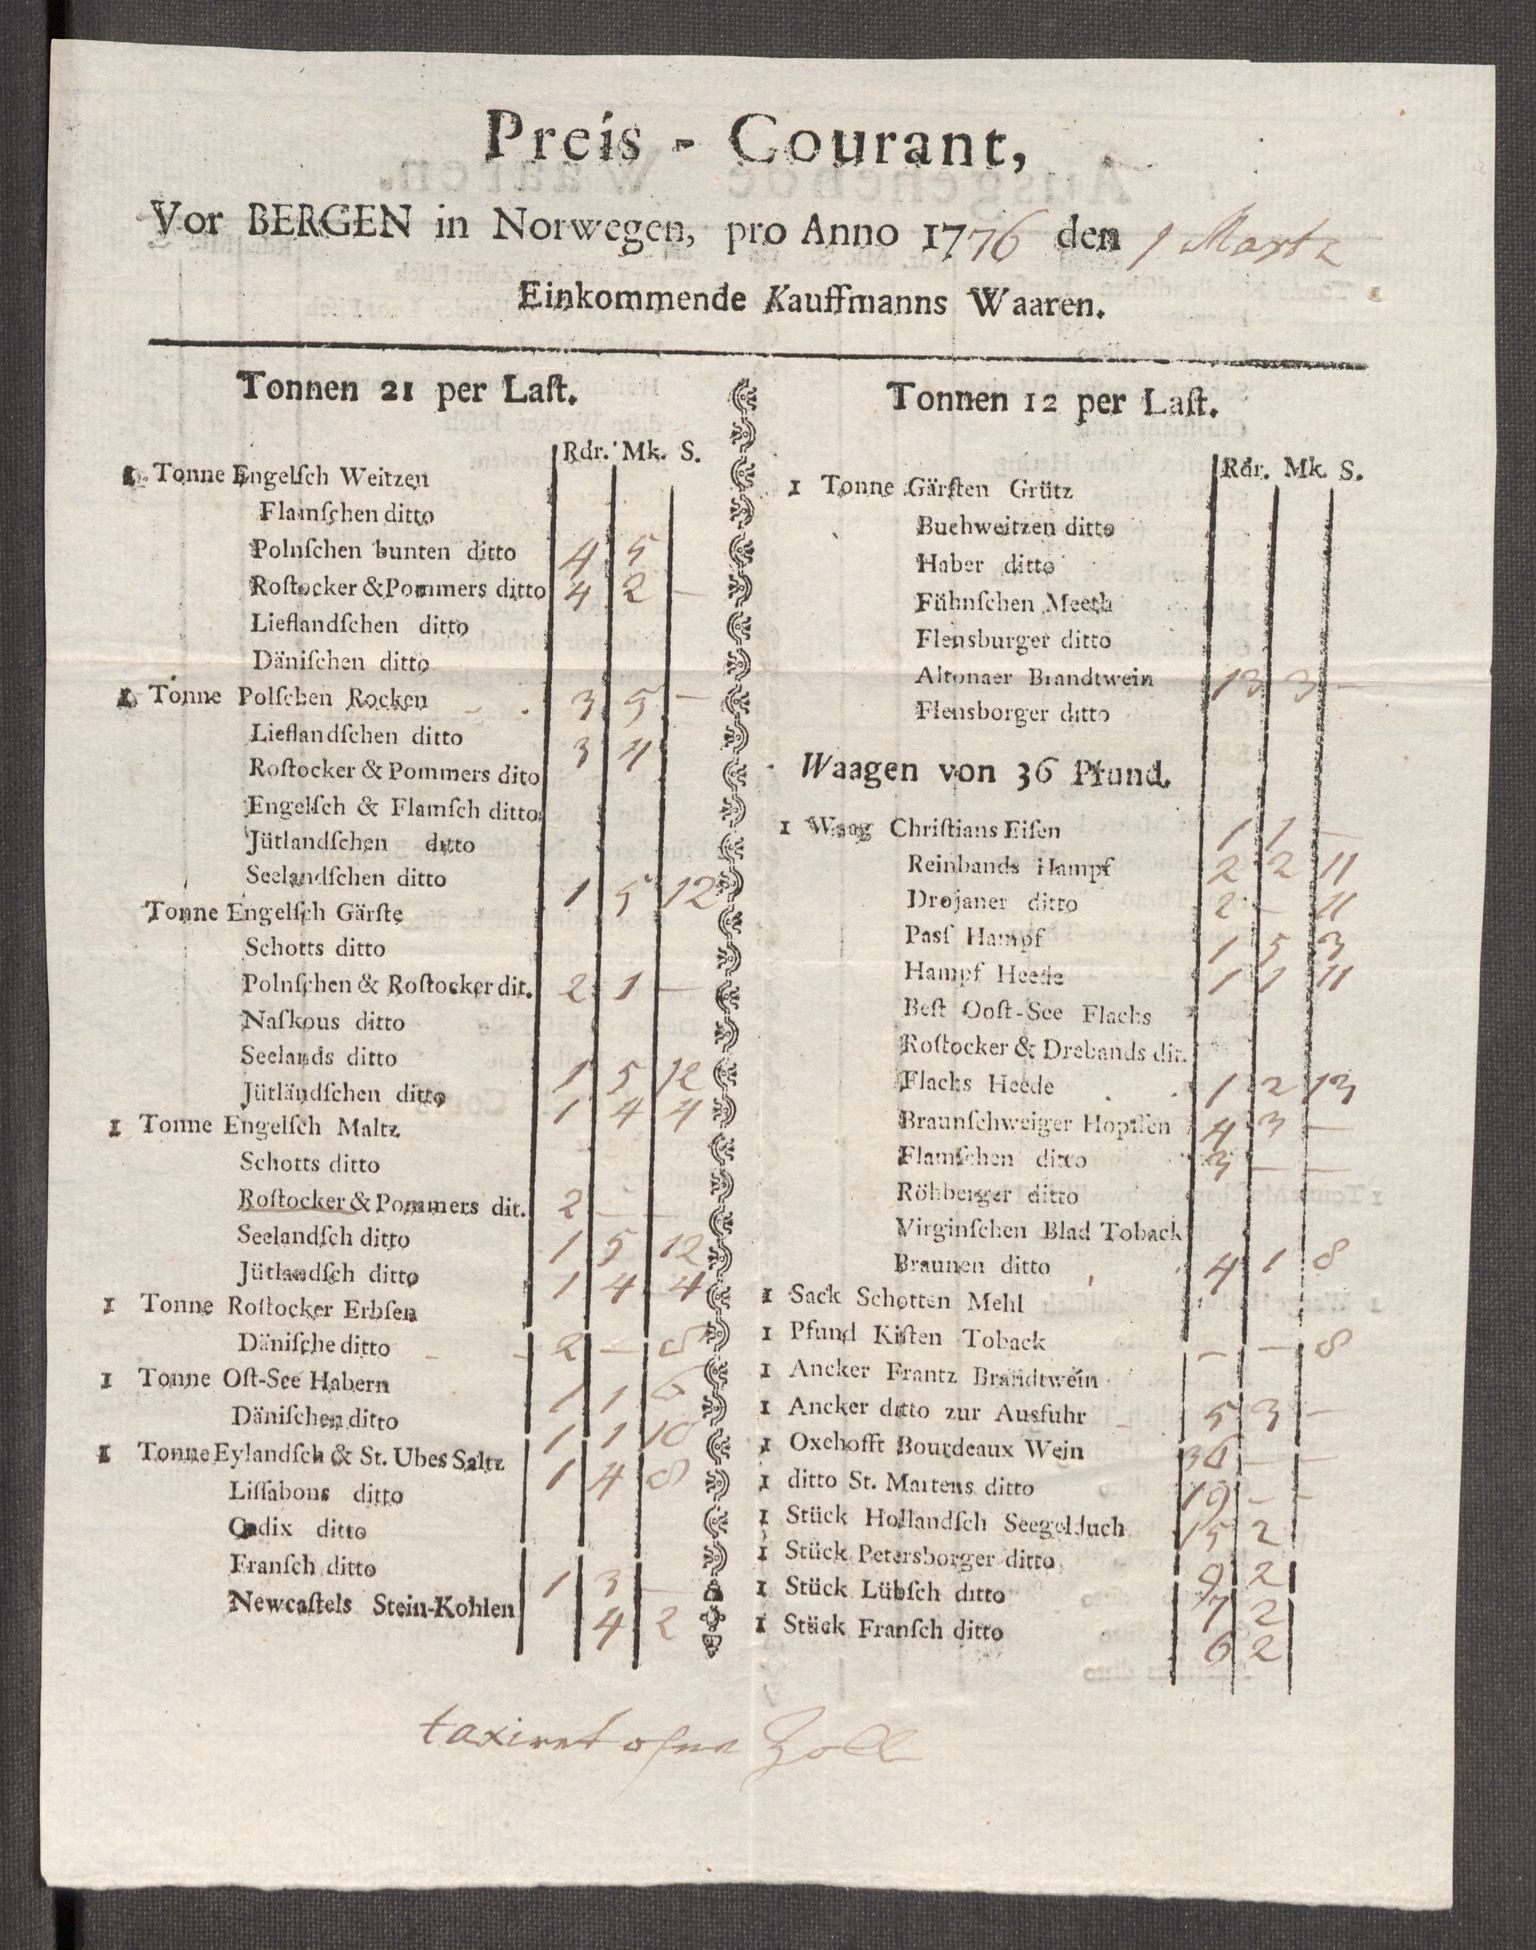 Preis - Courant,
Vor BERGEN in Norwegen, pro Anno 1776 den 1 Martz
Einkommende Kauffmanns Waaren.
Tonnen 21 per Laſt.
Rdr. Mk. S.
1 Tonne Engelſch Weitzen
Flamſchen ditto
Polnſchen bunten ditto 4 5
Roſtocker & Pommers ditto 4 2 —
Lieflandſchen ditto
Däniſchen ditto
1 Tonne Polſchen Rocken 3 5 —
Lieflandſchen ditto 3 4
Roſtocker & Pommers dito
Engelſch & Flamſch ditto
Jütlandſchen ditto
Seelandſchen ditto 1 5 12
Tonne Engelſch Gärſte
Schotts ditto
Polnſchen & Roſtocker dit. 2 1 —
Naſkous ditto
Seelands ditto 1 5 12
Jütländſchen ditto 1 4 4
1 Tonne Engelſch Maltz
Schotts ditto
Roſtocker & Pommers dit. 2 — —
Seelandſch ditto 1 5 12
Jütlandſch ditto 1 4 4
1 Tonne Roſtocker Erbſen
Däniſche ditto 2 — 8
1 Tonne Oſt-See Habern 1 1 6
Däniſchen ditto 1 1 10
1 Tonne Eylandſch & St. Ubes Saltz 1 4 8
Liſſabons ditto
Cadix ditto
Franſch ditto 1 3 —
Newcaſtels Stein-Kohlen 4 2
Tonnen 12 per Laſt.
Rdr. Mk. S.
1 Tonne Gärſten Grütz
Buchweitzen ditto
Haber ditto
Fühnſchen Meeth
Flensburger ditto
Altonaer Brandtwein 13 3 —
Flensborger ditto
Waagen von 36 Pfund.
1 Waag Chriſtians Eiſen 1 1 —
Reinbands Hampf 2 2 11
Drojaner ditto 2 — 11
Paſſ Hampf 1 5 3
Hampf Heede 1 1 11
Beſt Ooſt-See Flachs
Roſtocker & Drebands dit.
Flachs Heede 1 2 13
Braunſchweiger Hopffen 4 3 —
Flamſchen ditto 3 — —
Röhberger ditto
Virginſchen Blad Toback
Braunen ditto 4 1 8
1 Sack Schotten Mehl
1 Pfund Kiſten Toback — — 8
1 Ancker Frantz Brandtwein
1 Ancker ditto zur Ausfuhr 5 3 —
1 Oxehofft Bourdeaux Wein 36 — —
1 ditto St. Martens ditto 19 — —
1 Stück Hollandſch Seegelduch 15 2
1 Stück Petersborger ditto 9 2
1 Stück Lübſch ditto 7 2
1 Stück Franſch ditto 6 2
taxiret ohne Zoll